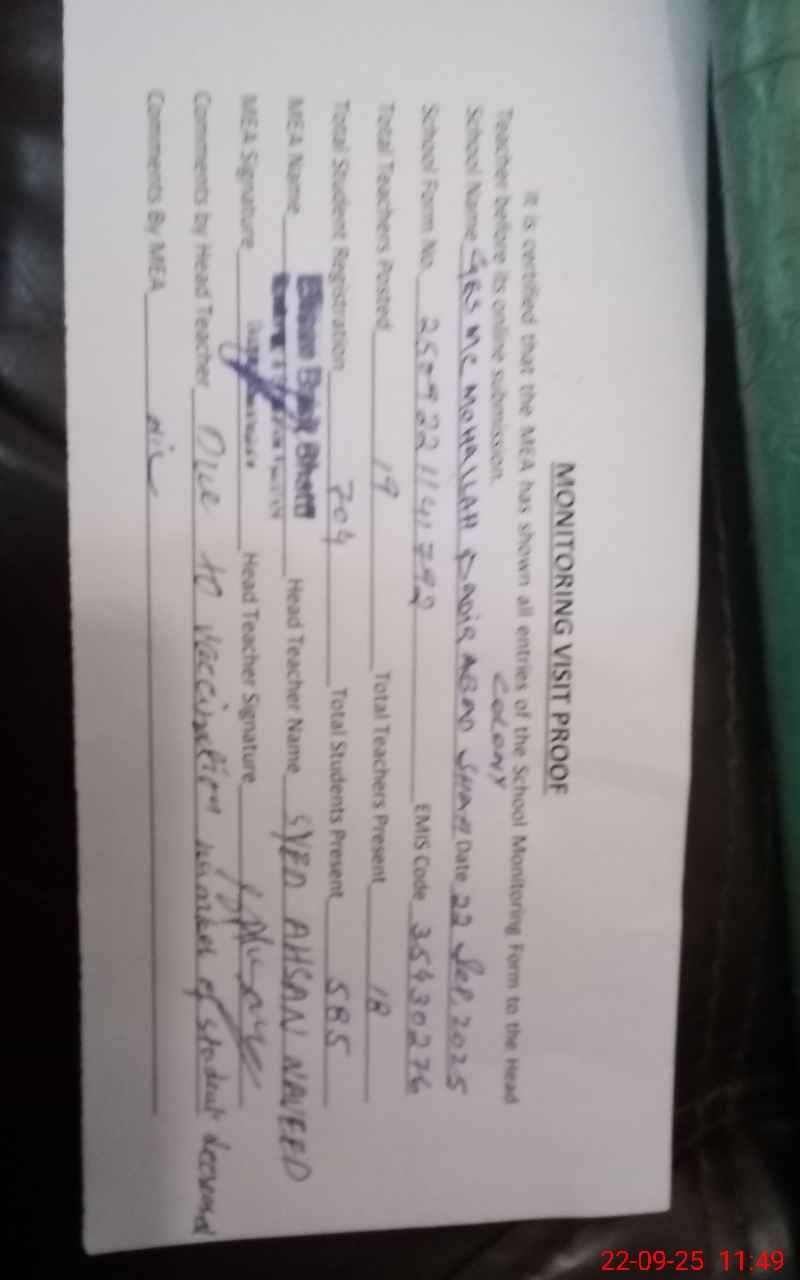 MONITORING VISIT PROOF
It is certified that the MEA has shown all entries of the School Monitoring Form to the Head
Teacher before its online submission. Colony
School Name GES MC MOHALLAH ABAD SHAH Date 22 Sep, 2025
School Form No. 250922114792 EMIS Code 35430276
Total Teachers Posted 19 Total Teachers Present 18
Total Student Registration 704 Total Students Present 585
MEA Name Bhatti Head Teacher Name SYED AHSAN NAVEED
MEA Signature Head Teacher Signature
Comments by Head Teacher Due to vaccination number of student decreased
Comments By MEA Nil
22-09-25 11:49